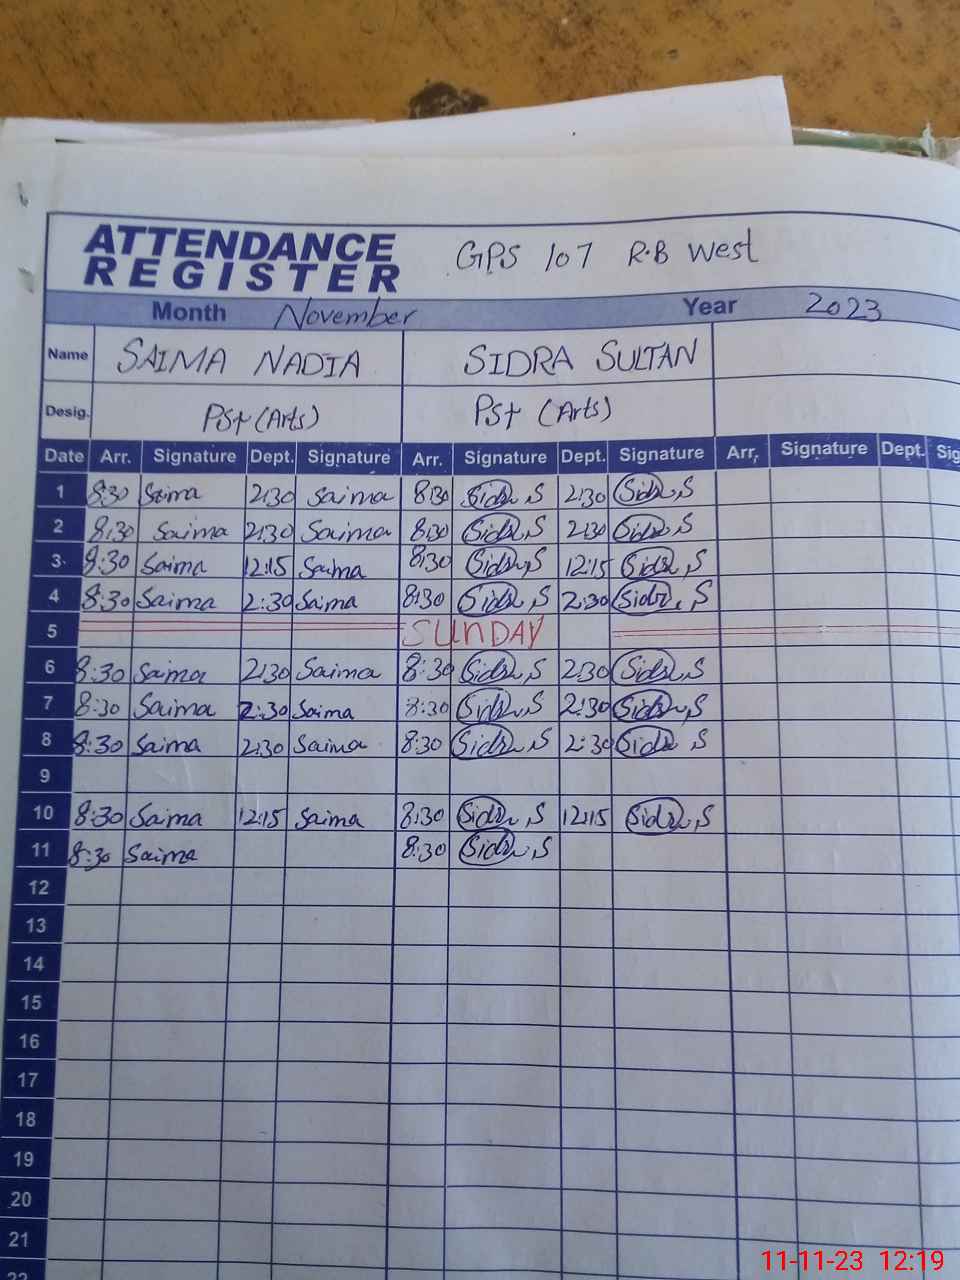 ATTENDANCE REGISTER GPS 107 R.B West
Month November Year 2023
Name SAIMA NADIA SIDRA SULTAN
Desig. PST (Arts) PST (Arts)
Date Arr. Signature Dept. Signature Arr. Signature Dept. Signature Arr. Signature Dept. Sig
1 8:30 Saima 2:30 Saima 8:30 Sidra, S 2:30 Sidra, S
2 8:30 Saima 2:30 Saima 8:30 Sidra, S 2:30 Sidra, S
3 8:30 Saima 12:15 Saima 8:30 Sidra, S 12:15 Sidra, S
4 8:30 Saima 2:30 Saima 8:30 Sidra, S 2:30 Sidra, S
5 SUNDAY
6 8:30 Saima 2:30 Saima 8:30 Sidra, S 2:30 Sidra, S
7 8:30 Saima 2:30 Saima 8:30 Sidra, S 2:30 Sidra, S
8 8:30 Saima 2:30 Saima 8:30 Sidra, S 2:30 Sidra S
9
10 8:30 Saima 12:15 Saima 8:30 Sidra, S 12:15 Sidra, S
11 8:30 Saima 8:30 Sidra, S
12
13
14
15
16
17
18
19
20
21
22
11-11-23 12:19